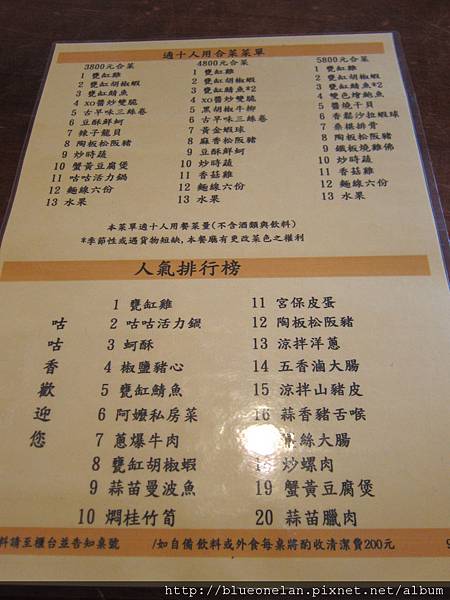 適十人用合菜菜單
3800元合菜
1 甕缸雞
2 甕缸胡椒蝦
3 甕缸鯖魚
4 xo醬炒雙脆
5 古早味三絲卷
6 豆酥鮮蚵
7 辣子龍貝
8 陶板松阪豬
9 炒時蔬
10 蟹黃豆腐煲
11 咕咕活力鍋
12 麵線六份
13 水果
4800元合菜
1 甕缸雞
2 甕缸胡椒蝦
3 甕缸鯖魚*2
4 xo醬炒雙脆
5 黑胡椒牛柳
6 古早味三絲卷
7 黃金蝦球
8 麻香松阪豬
9 豆酥鮮蚵
10 炒時蔬
11 香菇雞
12 麵線六份
13 水果
5800元合菜
1 甕缸雞
2 甕缸胡椒蝦
3 甕缸鯖魚*2
4 雙色燴鮑魚
5 醬燒干貝
6 香鬆沙拉蝦球
7 桑椹排骨
8 陶板松阪豬
9 鐵板燒雞佛
10 炒時蔬
11 香菇雞
12 麵線六份
13 水果
本菜單適十人用餐菜量(不含酒類與飲料)
*季節性或遇貨物短缺,本餐廳有更改菜色之權利
人氣排行榜
咕咕香歡迎您
1 甕缸雞
2 咕咕活力鍋
3 蚵酥
4 椒鹽豬心
5 甕缸鯖魚
6 阿嬤私房菜
7 蔥爆牛肉
8 甕缸胡椒蝦
9 蒜苗曼波魚
10 燜桂竹筍
11 宮保皮蛋
12 陶板松阪豬
13 涼拌洋蔥
14 五香滷大腸
15 涼拌山豬皮
16 蒜香豬舌喉
絲大腸
炒螺肉
19 蟹黃豆腐煲
20 蒜苗臘肉
料請至櫃台並告知桌號 /如自備飲料或外食每桌將酌收清潔費200元 9
http://blueonelan.pixnet.net/album